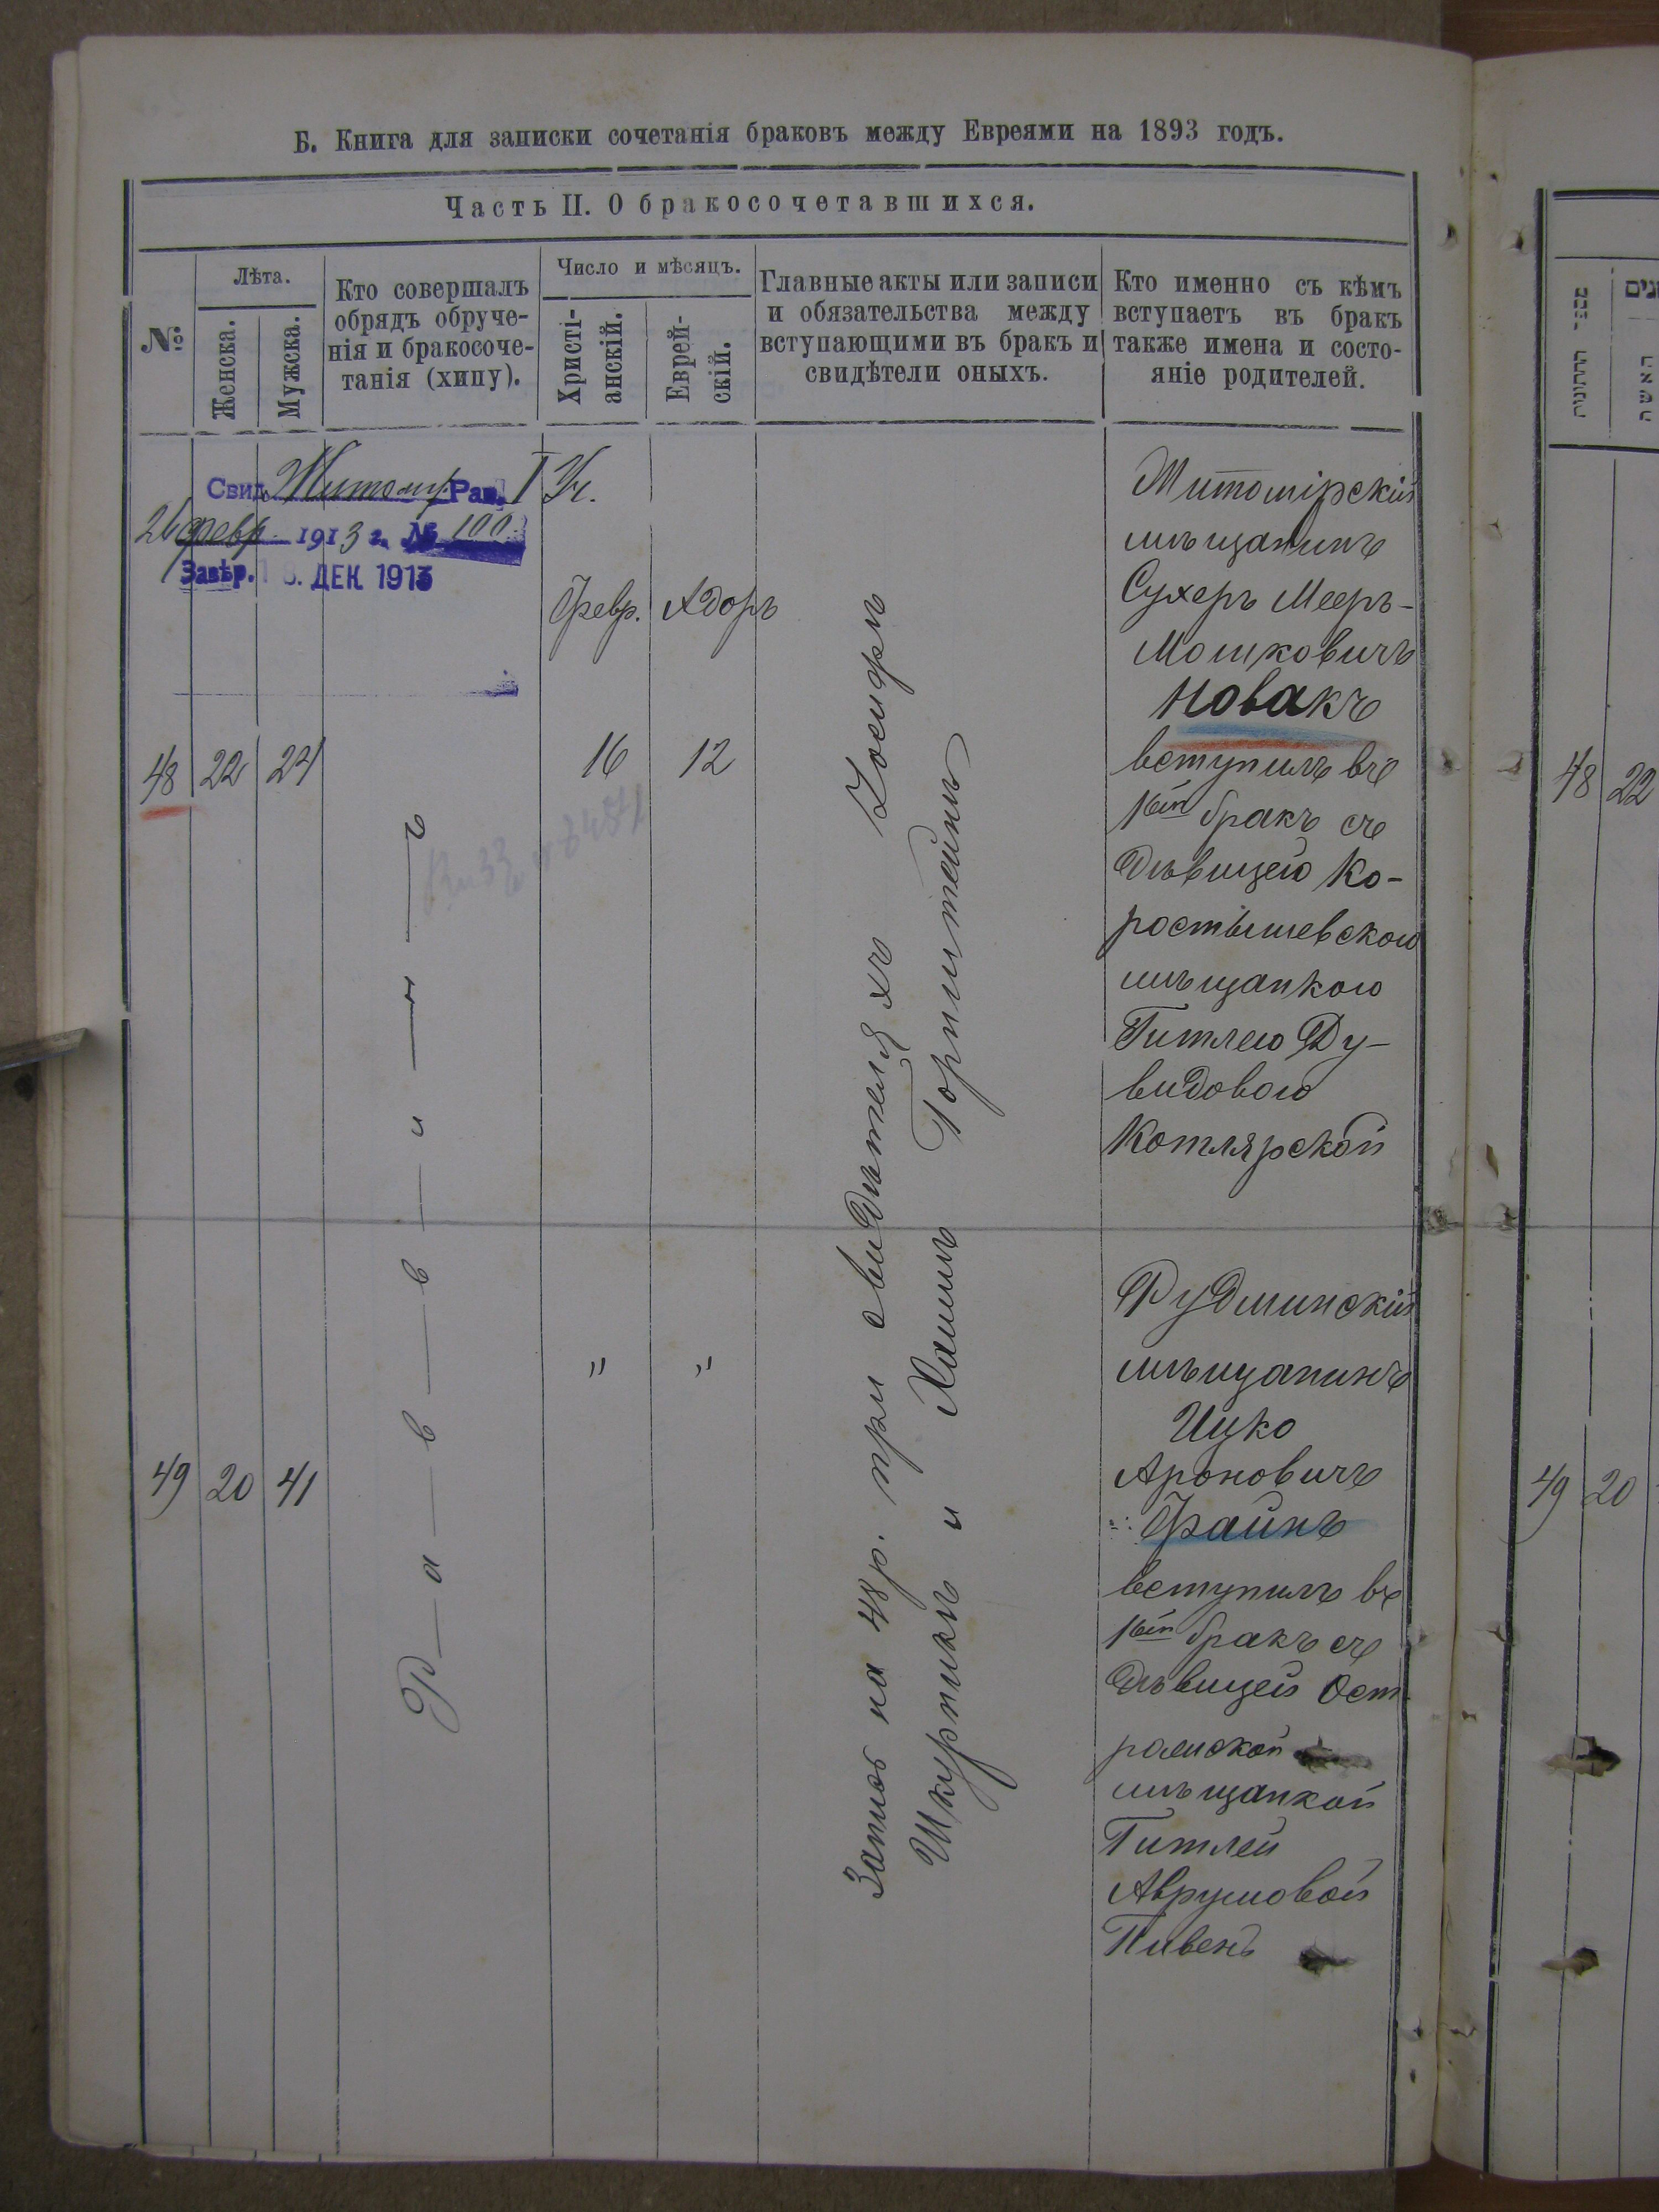 Б. Книга для записки сочетанія браковъ между Евреями на 1893 годъ.
Часть II. О бракосочетавшихся.
№
Лѣта.
Женска.
Мужска.
Кто совершалъ
обрядъ обруче-
нія и бракосоче-
танія (хипу).
Число и мѣсяцъ.
Христі-
анскій.
Еврей-
скій.
Главные акты или записи
и обязательства между
вступающими въ бракъ и
свидѣтели оныхъ.
Кто именно съ кѣмъ
вступаетъ въ бракъ
также имена и состо-
яніе родителей.
Свид. Житомір. Рав. I Уч.
26 февр. 1913 г. № 100
Завѣр. ДЕК 1913
Февр. Адоръ
48 22 24
16 12
Р-а-в-в-и-н-ъ
Запись на 48 р. при свидѣтеляхъ Іосифъ
Шкурникъ и Хаимъ Горнштейнъ
Житомірскій
мѣщанинъ
Сухеръ Мееръ-
Мошковичъ
Новакъ
вступилъ въ
1ый бракъ съ
дѣвицею Ко-
ростышевскою
мѣщанкою
Гитлею Ду-
видовою
Котлярской
49 20 41
" "
Рудминскій
мѣщанинъ
Ицко
Ароновичъ
Файнъ
вступилъ въ
1ый бракъ съ
дѣвицей Ост-
мѣщанкой
Гитлей
Аврумовой
Пивень
48 22
49 20